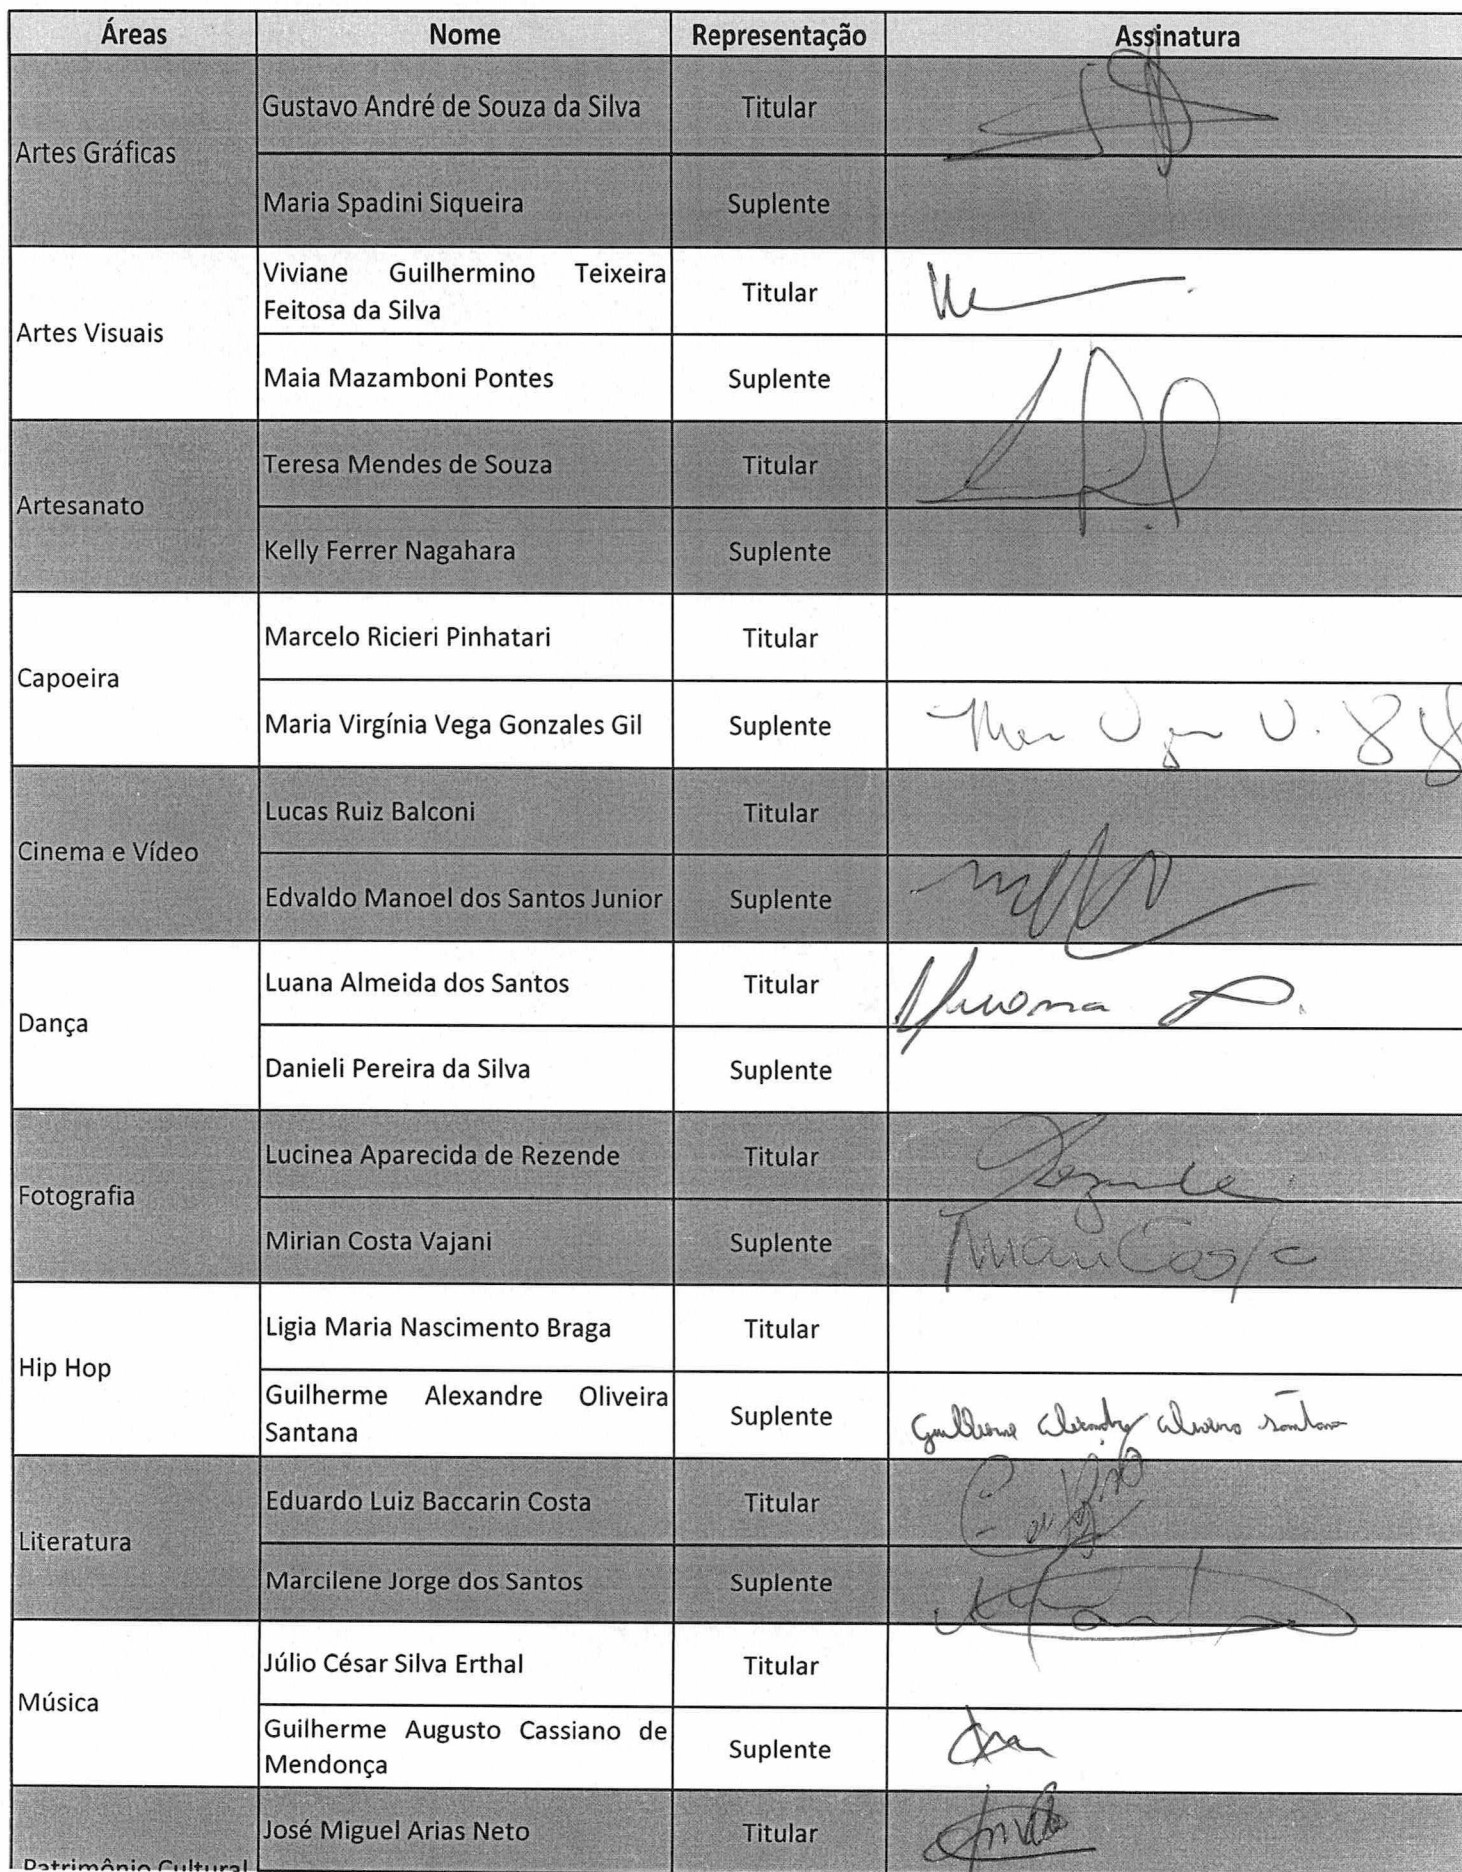 Áreas Nome Representação Assinatura
Artes Gráficas
Gustavo André de Souza da Silva Titular
Maria Spadini Siqueira Suplente
Artes Visuais
Viviane Guilhermino Teixeira
Feitosa da Silva Titular
Maia Mazamboni Pontes Suplente
Artesanato
Teresa Mendes de Souza Titular
Kelly Ferrer Nagahara Suplente
Capoeira
Marcelo Ricieri Pinhatari Titular
Maria Virgínia Vega Gonzales Gil Suplente
Cinema e Vídeo
Lucas Ruiz Balconi Titular
Edvaldo Manoel dos Santos Junior Suplente
Dança
Luana Almeida dos Santos Titular
Danieli Pereira da Silva Suplente
Fotografia
Lucinea Aparecida de Rezende Titular
Mirian Costa Vajani Suplente
Hip Hop
Ligia Maria Nascimento Braga Titular
Guilherme Alexandre Oliveira
Santana Suplente Guilherme Alexandre Oliveira Santana
Literatura
Eduardo Luiz Baccarin Costa Titular
Marcilene Jorge dos Santos Suplente
Música
Júlio César Silva Erthal Titular
Guilherme Augusto Cassiano de
Mendonça Suplente
José Miguel Arias Neto Titular
Patrimônio Cultural